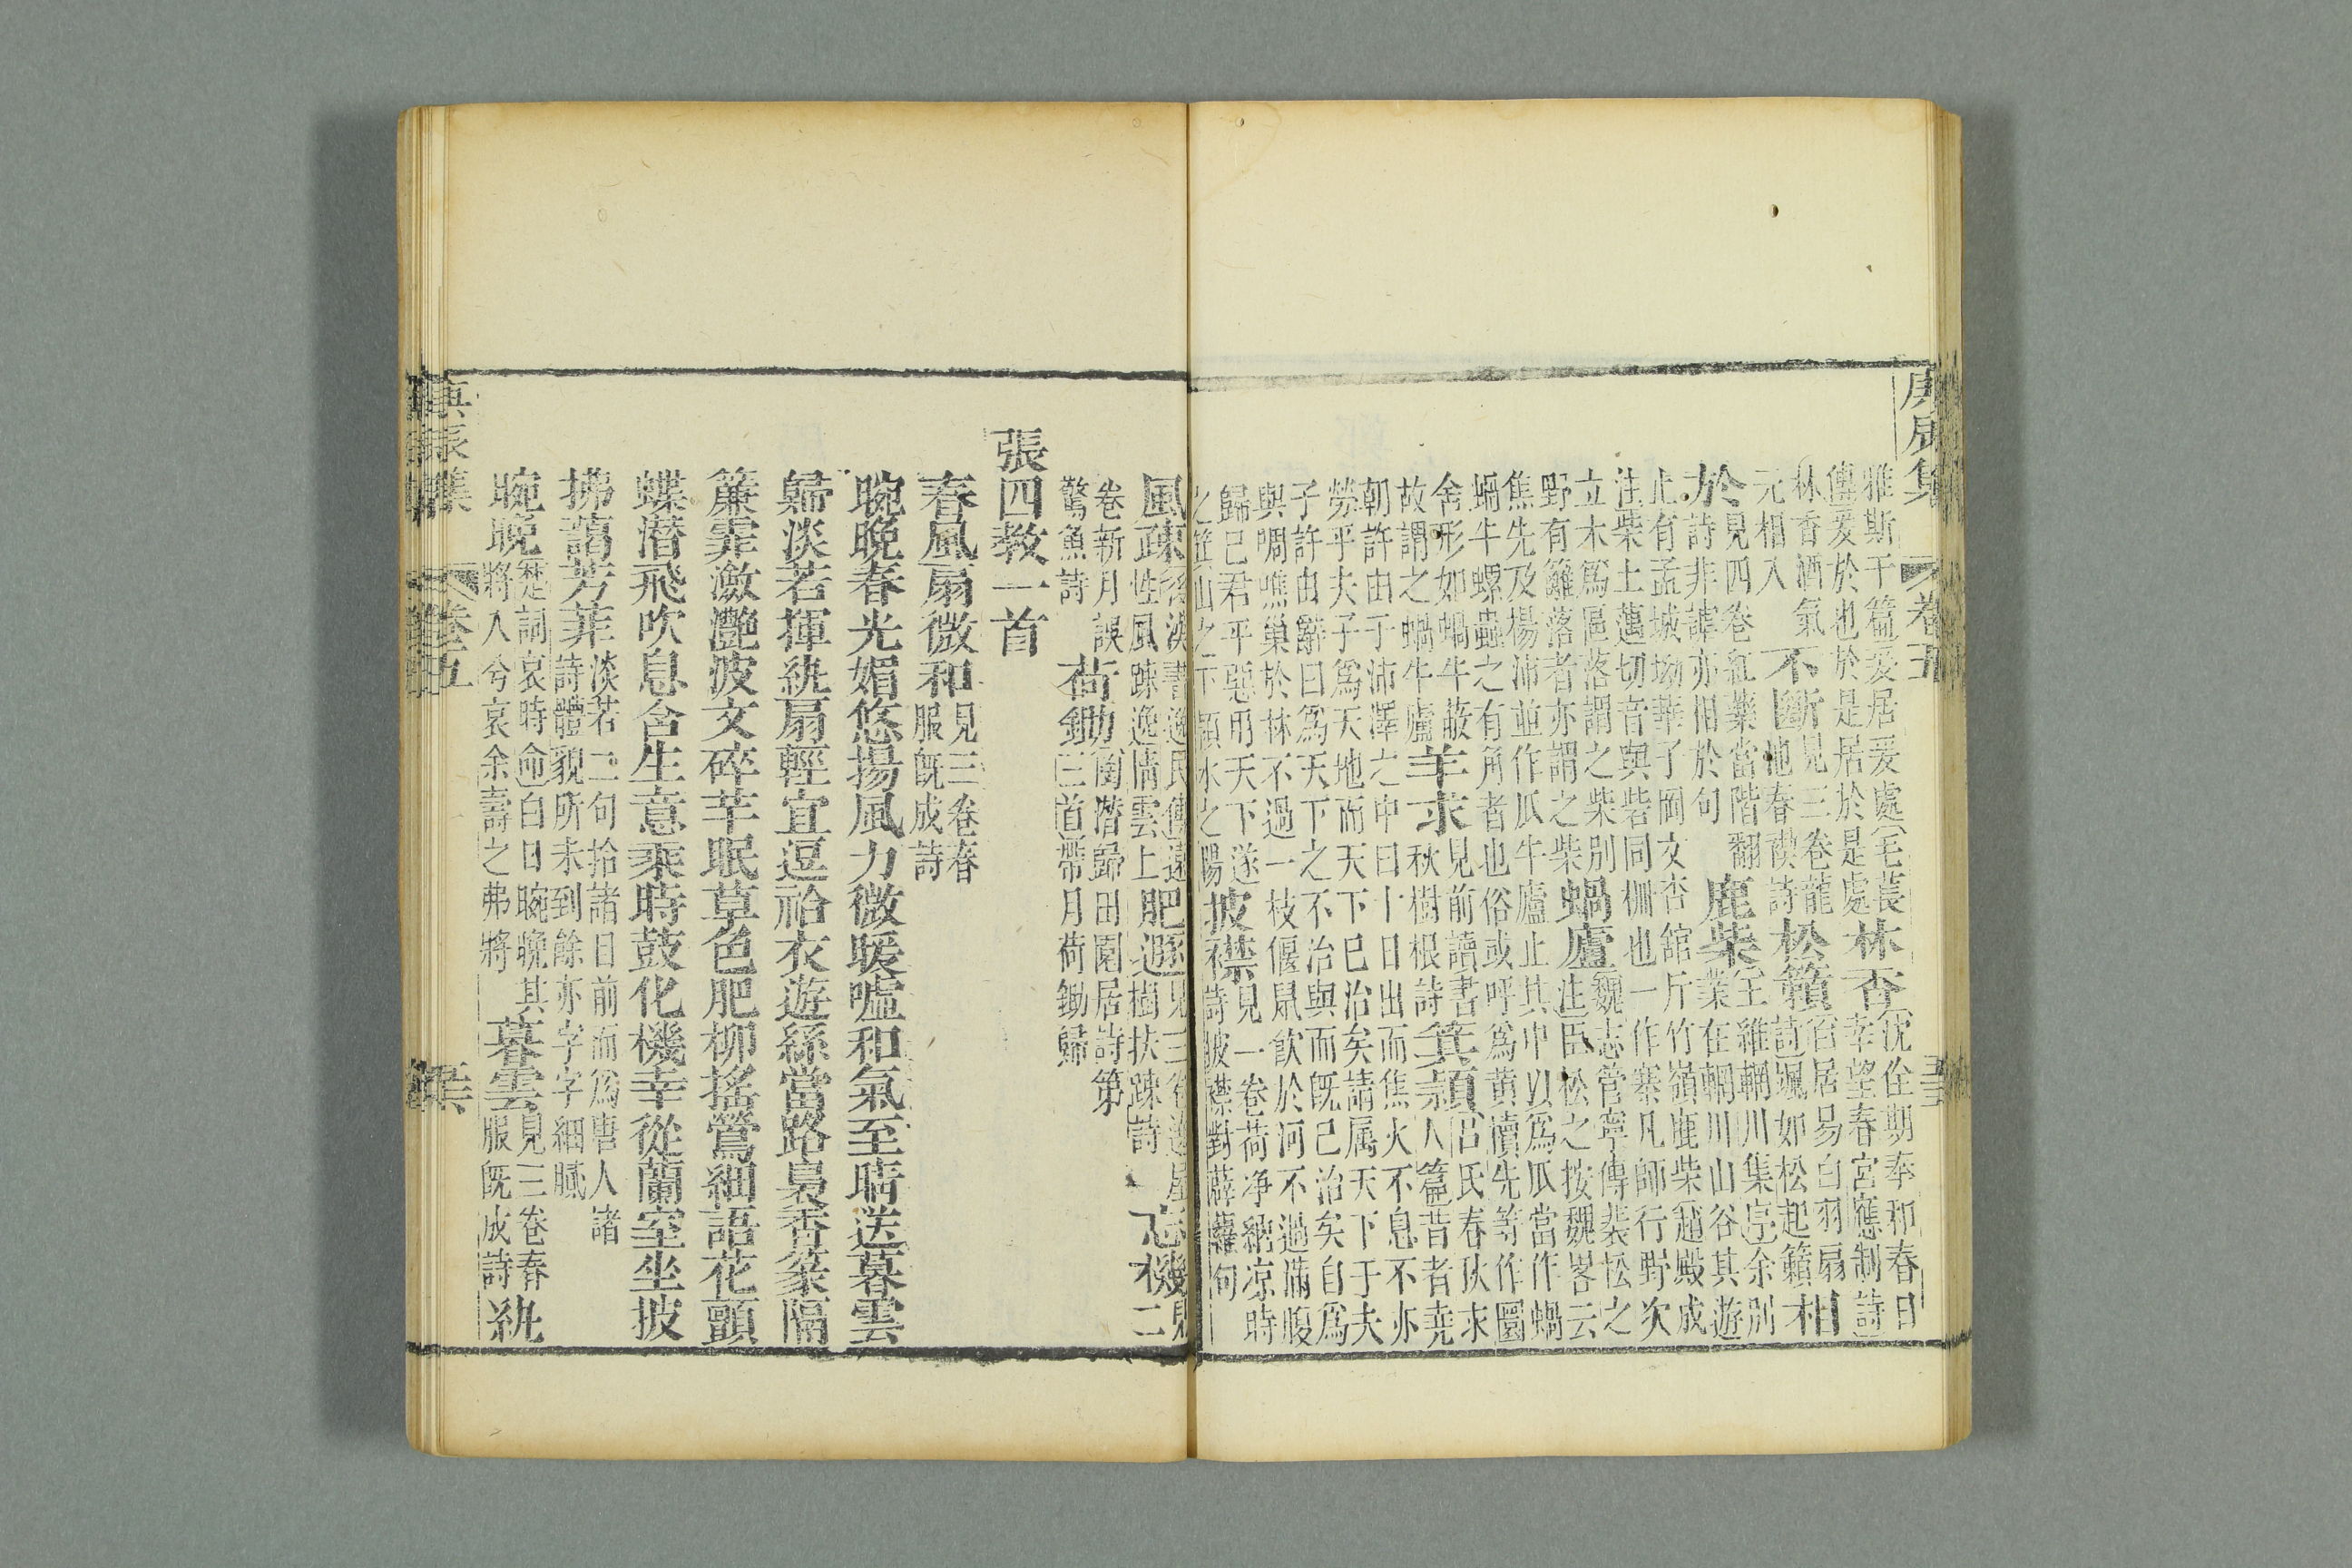 庚辰集 卷五
雅斯干篇爰居爰處毛萇
傳爰於也於是居於是處
林香
沈佺期奉和春日
幸望春宮應制詩
林香酒氣
元相入
不斷
見三卷龍
池春禊詩
松籟
白居易白羽扇
詩颯如松起籟
相
於
見四卷紅藥當階翻
詩非謔亦相於句
鹿柴
王維輞川集序余別
業在輞川山谷其遊
止有孟城坳華子岡文杏館斤竹嶺鹿柴趙殿成
注柴士邁切音與砦同柵也一作寨凡師行野次
立木爲區落謂之柴別
野有籬落者亦謂之柴
蝸廬
魏志管寧傳裴松之
注臣松之按魏畧云
焦先及楊沛並作瓜牛廬止其中以爲瓜當作蝸
蝸牛螺蟲之有角者也俗或呼爲黄犢先等作圜
舍形如蝸牛蔽
故謂之蝸牛廬
羊求
見前讀書
秋樹根詩
箕潁
呂氏春秋求
人篇昔者堯
朝許由于沛澤之中曰十日出而焦火不息不亦
勞乎夫子爲天地而天下已治矣請属天下于夫
子許由辭曰爲天下之不治與而旣已治矣自爲
與啁噍巢於林不過一枝偃鼠飲於河不過滿腹
歸已君乎惡用天下遂
之箕山之下潁水之陽
披襟
見一卷荷净納凉時
詩披襟對薜蘿句
風疎
性風疎逸情雲上
肥遯
樹扶疎詩
忘機
見二
卷新月誤
驚魚詩
荷鋤
陶潜歸田園居詩第
三首帶月荷鋤歸
張四教一首
春風扇微和
見三卷春
服旣成詩
晼晚春光媚悠揚風力微暖嘘和氣至晴送暮雲
歸淡若揮紈扇輕宜逗袷衣遊絲當路裊香篆隔
簾霏瀲灧波文碎芊眠草色肥柳搖鶯細語花顫
蝶潛飛吹息含生意乘時鼓化機幸從蘭室坐披
拂藹芳菲
淡若二句拾諸目前而爲唐人諸
詩體貌所未到餘亦字字細膩
晼晚
楚詞哀時命白日晼晚其
將入兮哀余壽之弗將
暮雲
見三卷春
服旣成詩
紈
庚辰集 卷五